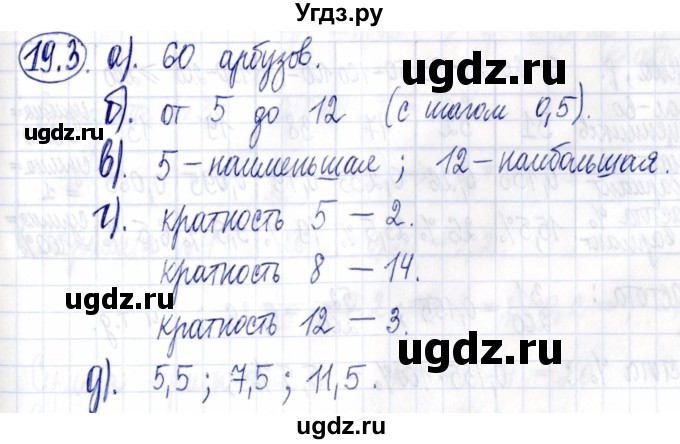 Угдз.ру
19.3. а). 60 арбузов.
ugdz.ru
б). от 5 до 12 (с шагом 0,5).
в). 5 – наименьшая ; 12 – наибольшая.
г). кратность 5 – 2.
ugdz.ru
кратность 8 – 14.
ugdz.ru
кратность 12 – 3.
ugdz.ru
д). 5,5 ; 7,5 ; 11,5.
ugdz.ru